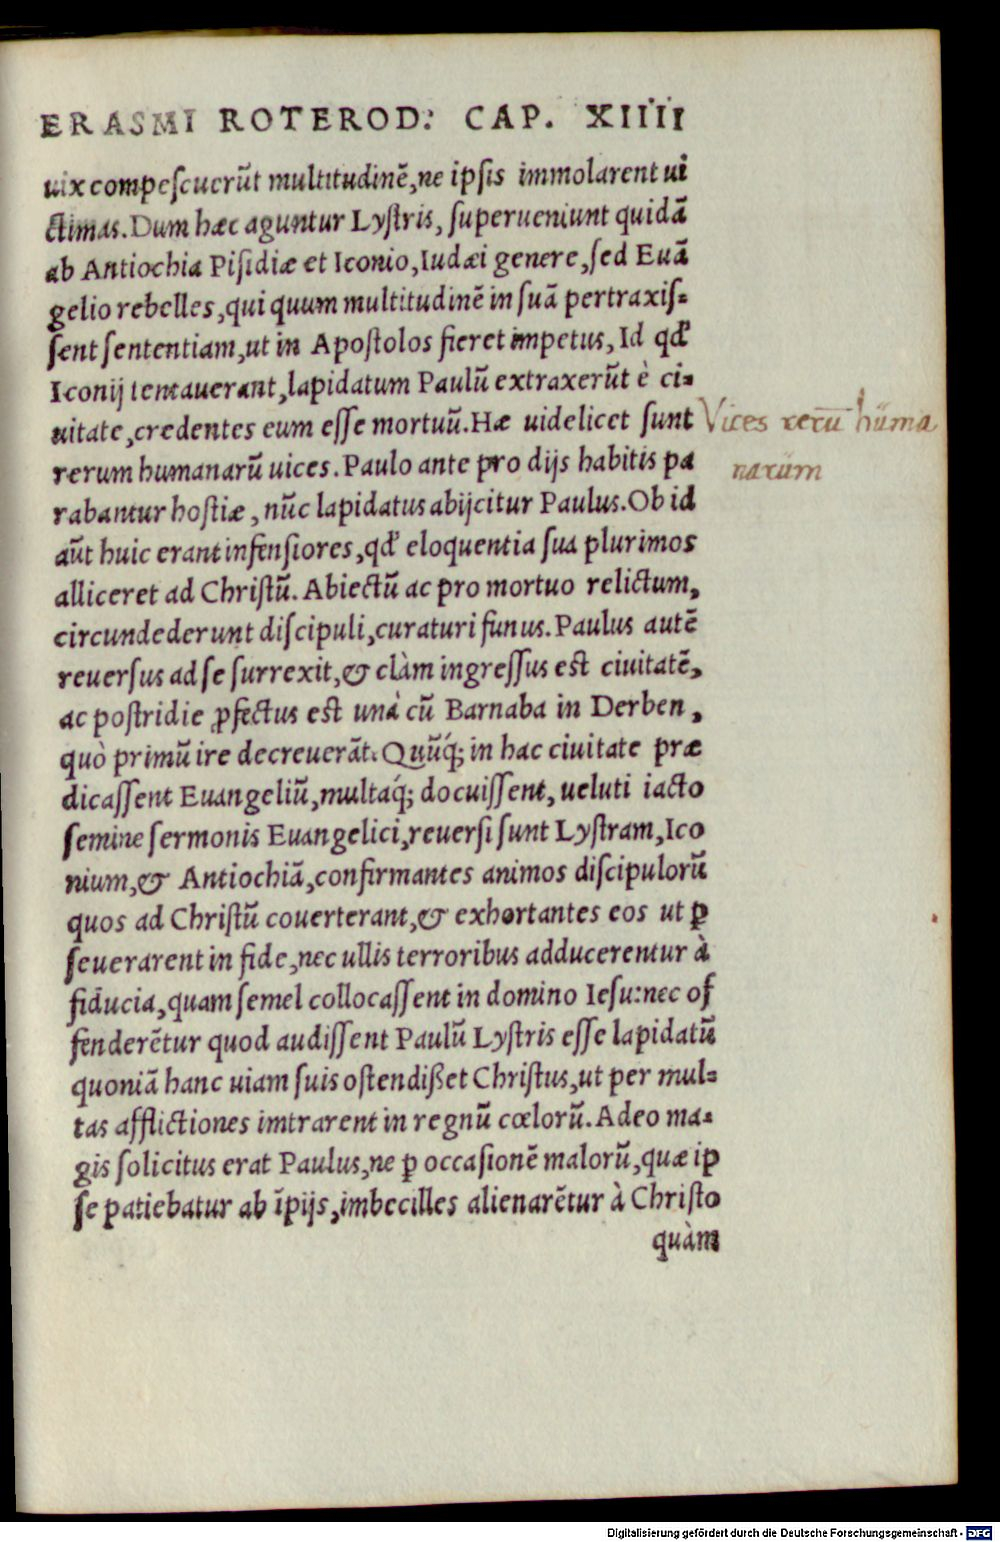 ERASMI ROTEROD: CAP. XIIII
uix compeſcuerūt multitudinē, ne ipſis immolarent ui
ctimas. Dum hæc aguntur Lyſtris, ſuperueniunt quidā
ab Antiochia Piſidiæ et Iconio, Iudæi genere, ſed Euā
gelio rebelles, qui quum multitudinē in ſuā pertraxiſ⸗
ſent ſententiam, ut in Apoſtolos fieret impetus, Id qđ
Iconij tentauerant, lapidatum Paulū extraxerūt è ci⸗
uitate, credentes eum eſſe mortuū. Hæ uidelicet ſunt
rerum humanarū uices. Paulo ante pro dijs habitis pa
rabantur hoſtiæ, nūc lapidatus abijcitur Paulus. Ob id
aūt huic erant infenſiores, qđ eloquentia ſua plurimos
alliceret ad Chriſtū. Abiectū ac pro mortuo relictum,
circundederunt diſcipuli, curaturi funus. Paulus autē
reuerſus ad ſe ſurrexit, & clàm ingreſſus eſt ciuitatē,
ac poſtridie ꝓfectus eſt unà cū Barnaba in Derben,
quò primū ire decreuerāt. Quūq́; in hac ciuitate præ
dicaſſent Euangeliū, multaq́; docuiſſent, ueluti iacto
ſemine ſermonis Euangelici, reuerſi ſunt Lyſtram, Ico
nium, & Antiochiā, confirmantes animos diſcipulorū
quos ad Chriſtū couerterant, & exhortantes eos ut ꝑ
ſeuerarent in fide, nec ullis terroribus adducerentur à
fiducia, quam ſemel collocaſſent in domino Ieſu: nec of
fenderētur quod audiſſent Paulū Lyſtris eſſe lapidatū
quoniā hanc uiam ſuis oſtendißet Chriſtus, ut per mul⸗
tas afflictiones imtrarent in regnū cœlorū. Adeo ma⸗
gis ſolicitus erat Paulus, ne ꝑ occaſionē malorū, quæ ip
ſe patiebatur ab īpijs, imbecilles alienarētur à Chriſto
quàm
Vices rerū hūma
narūm
Digitalisierung gefördert durch die Deutsche Forschungsgemeinschaft - DFG